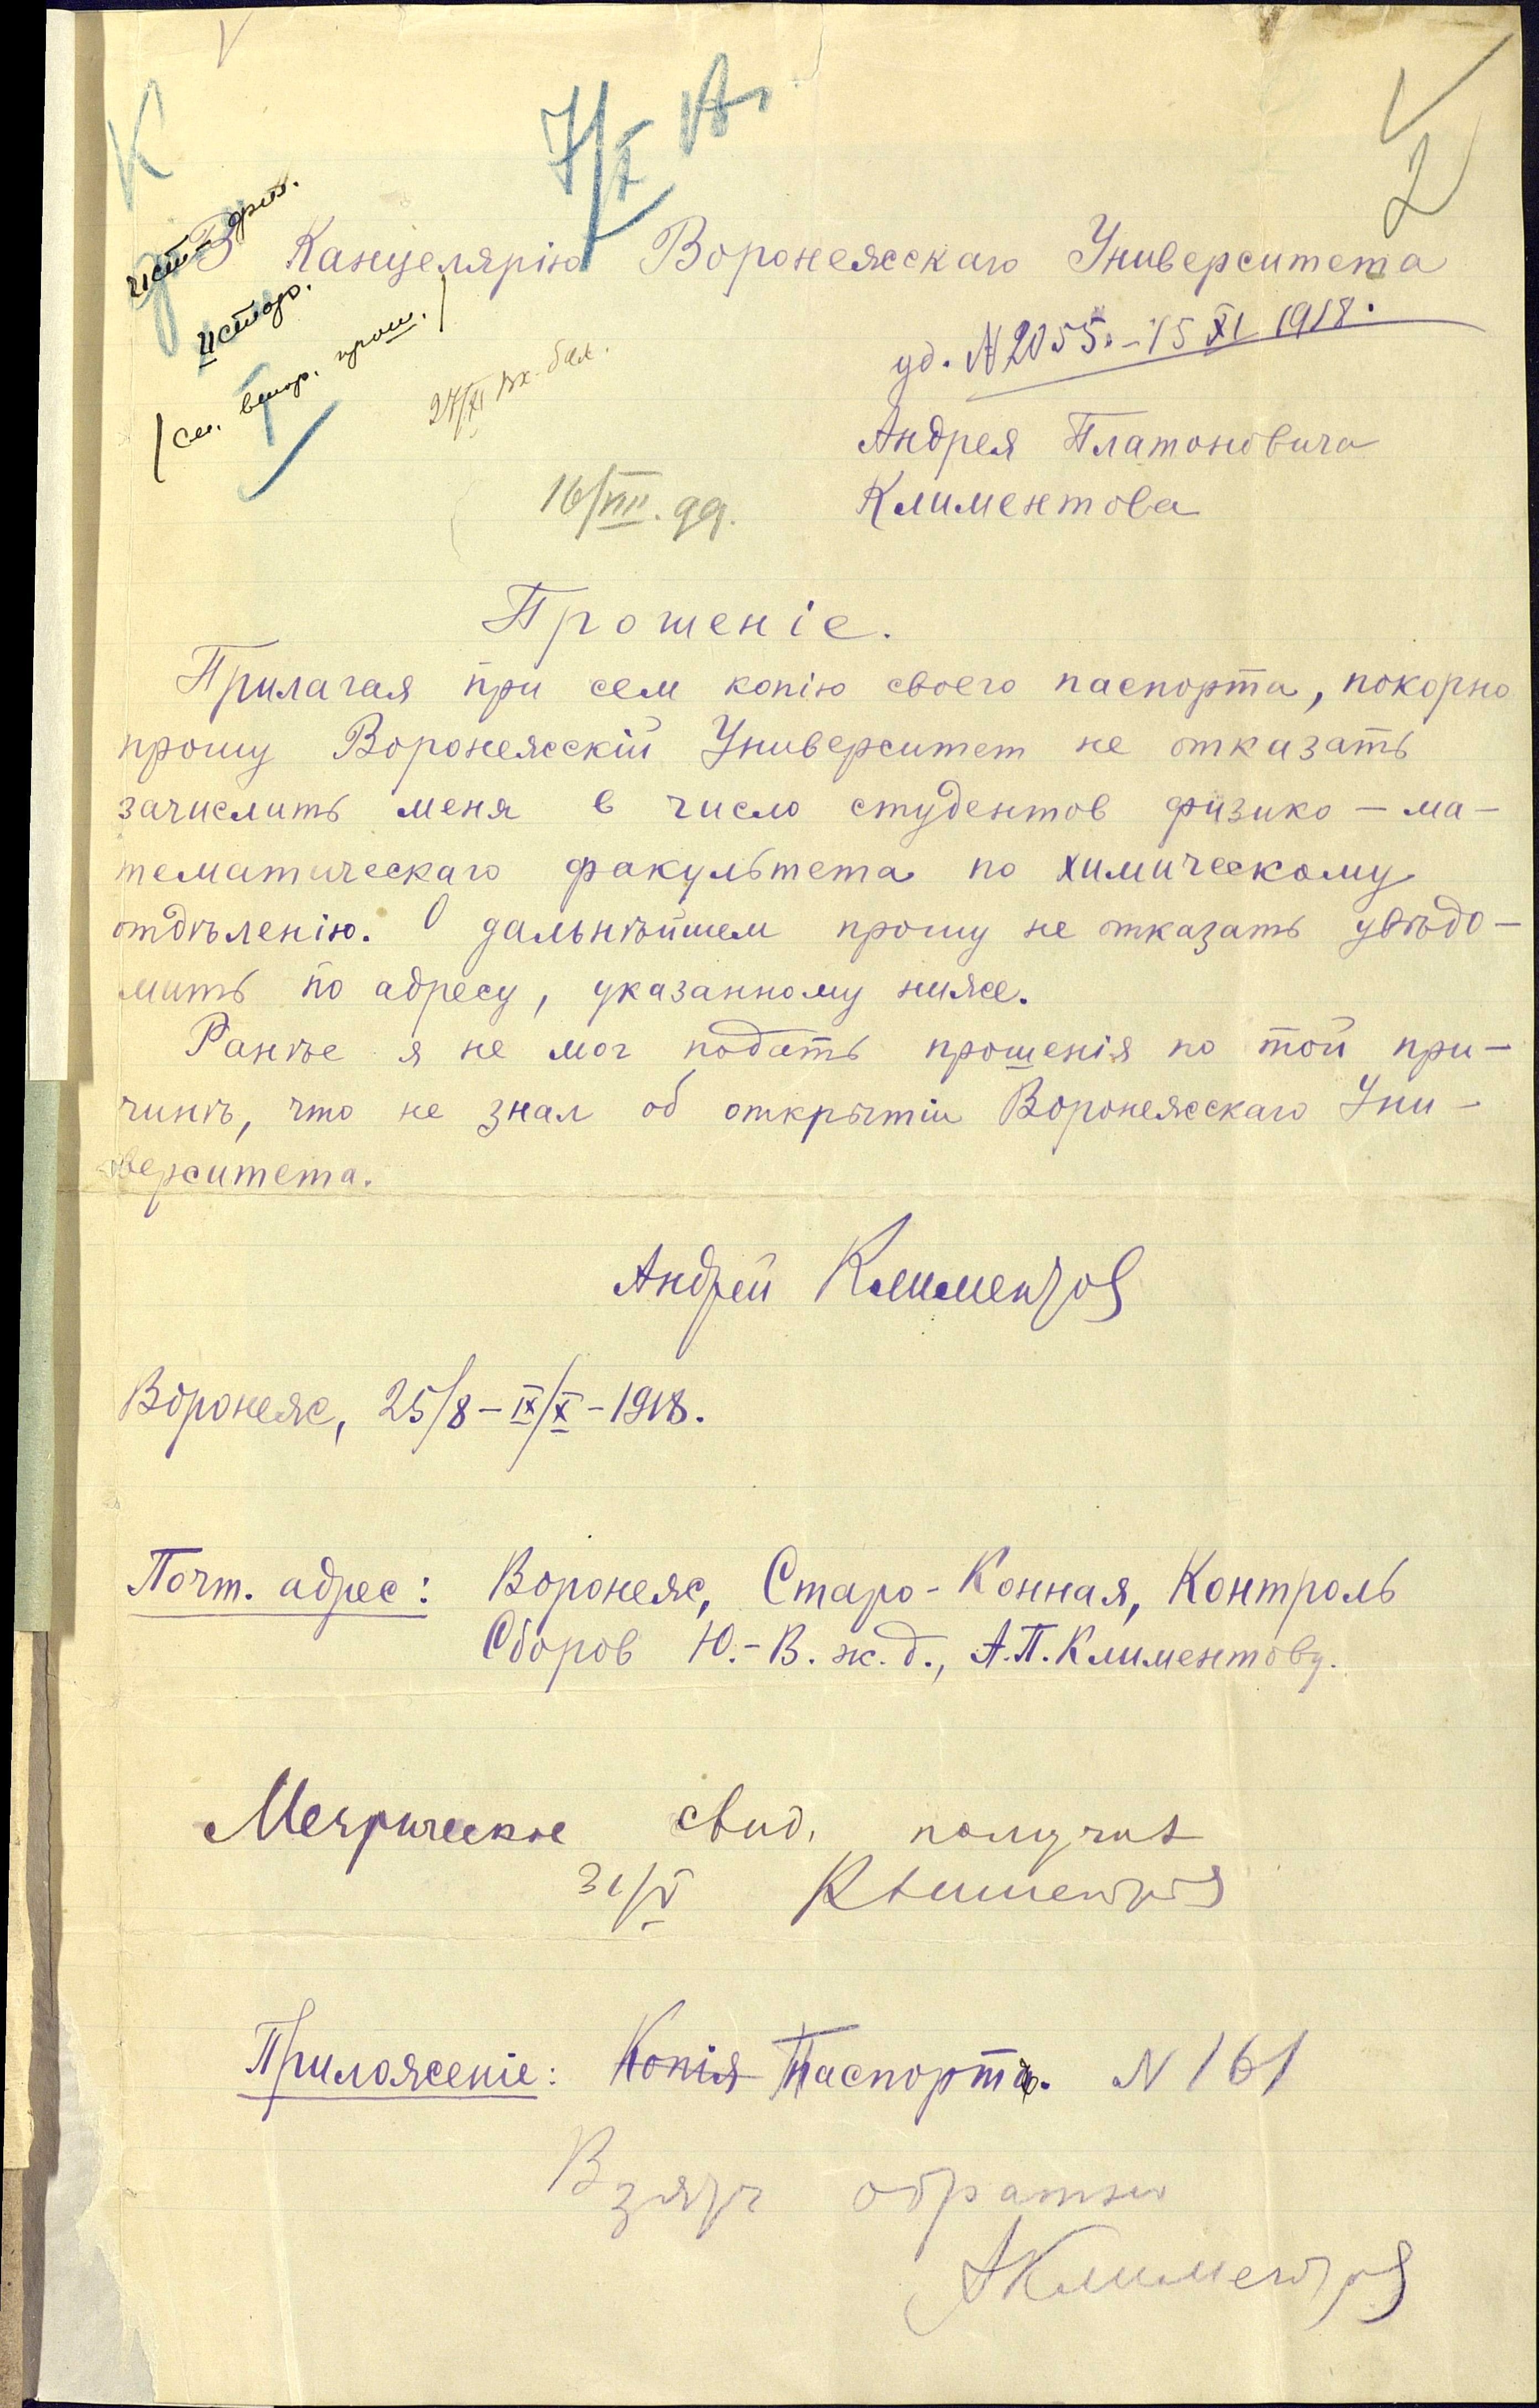 К
7/X
2
ист.-фил.
истор.
(см. втор. прош.)
В Канцелярію Воронежскаго Университета
уд. № 2055. – 15 XI 1918.
27/XI
Андрея Платоновича
16/VIII. 99.
Климентова
Прошеніе.
Прилагая при сем копію своего паспорта, покорно
прошу Воронежскій Университет не отказать
зачислить меня в число студентов физико – ма–
тематическаго факультета по химическому
отдѣленію. О дальнѣйшем прошу не отказать увѣдо–
мить по адресу, указанному ниже.
Ранѣе я не мог подать прошенія по той при–
чинѣ, что не знал об открытіи Воронежскаго Уни–
верситета.
Андрей Климентов
Воронеж, 25/8 – IX/X – 1918.
Почт. адрес: Воронеж, Старо-Конная, Контроль
Сборов Ю.-В. ж. д., А.П. Климентову.
Метрическое свид. получил
31/V Климентов
Приложеніе: Копія Паспорта. № 161
Взят обратно
А Климентов